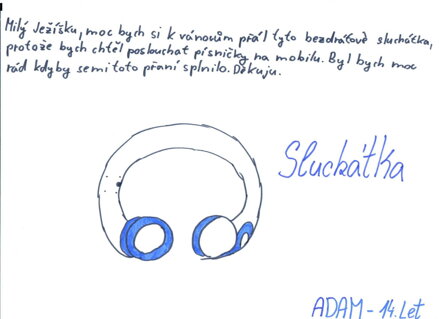 Milý Ježíšku, moc bych si k vánovům přál tyto bezdrátové sluchátka,
protože bych chtěl poslouchat písničky na mobilu. Byl bych moc
rád kdyby semi toto přaní splnilo. Děkuju.
Sluchátka
ADAM - 14. Let